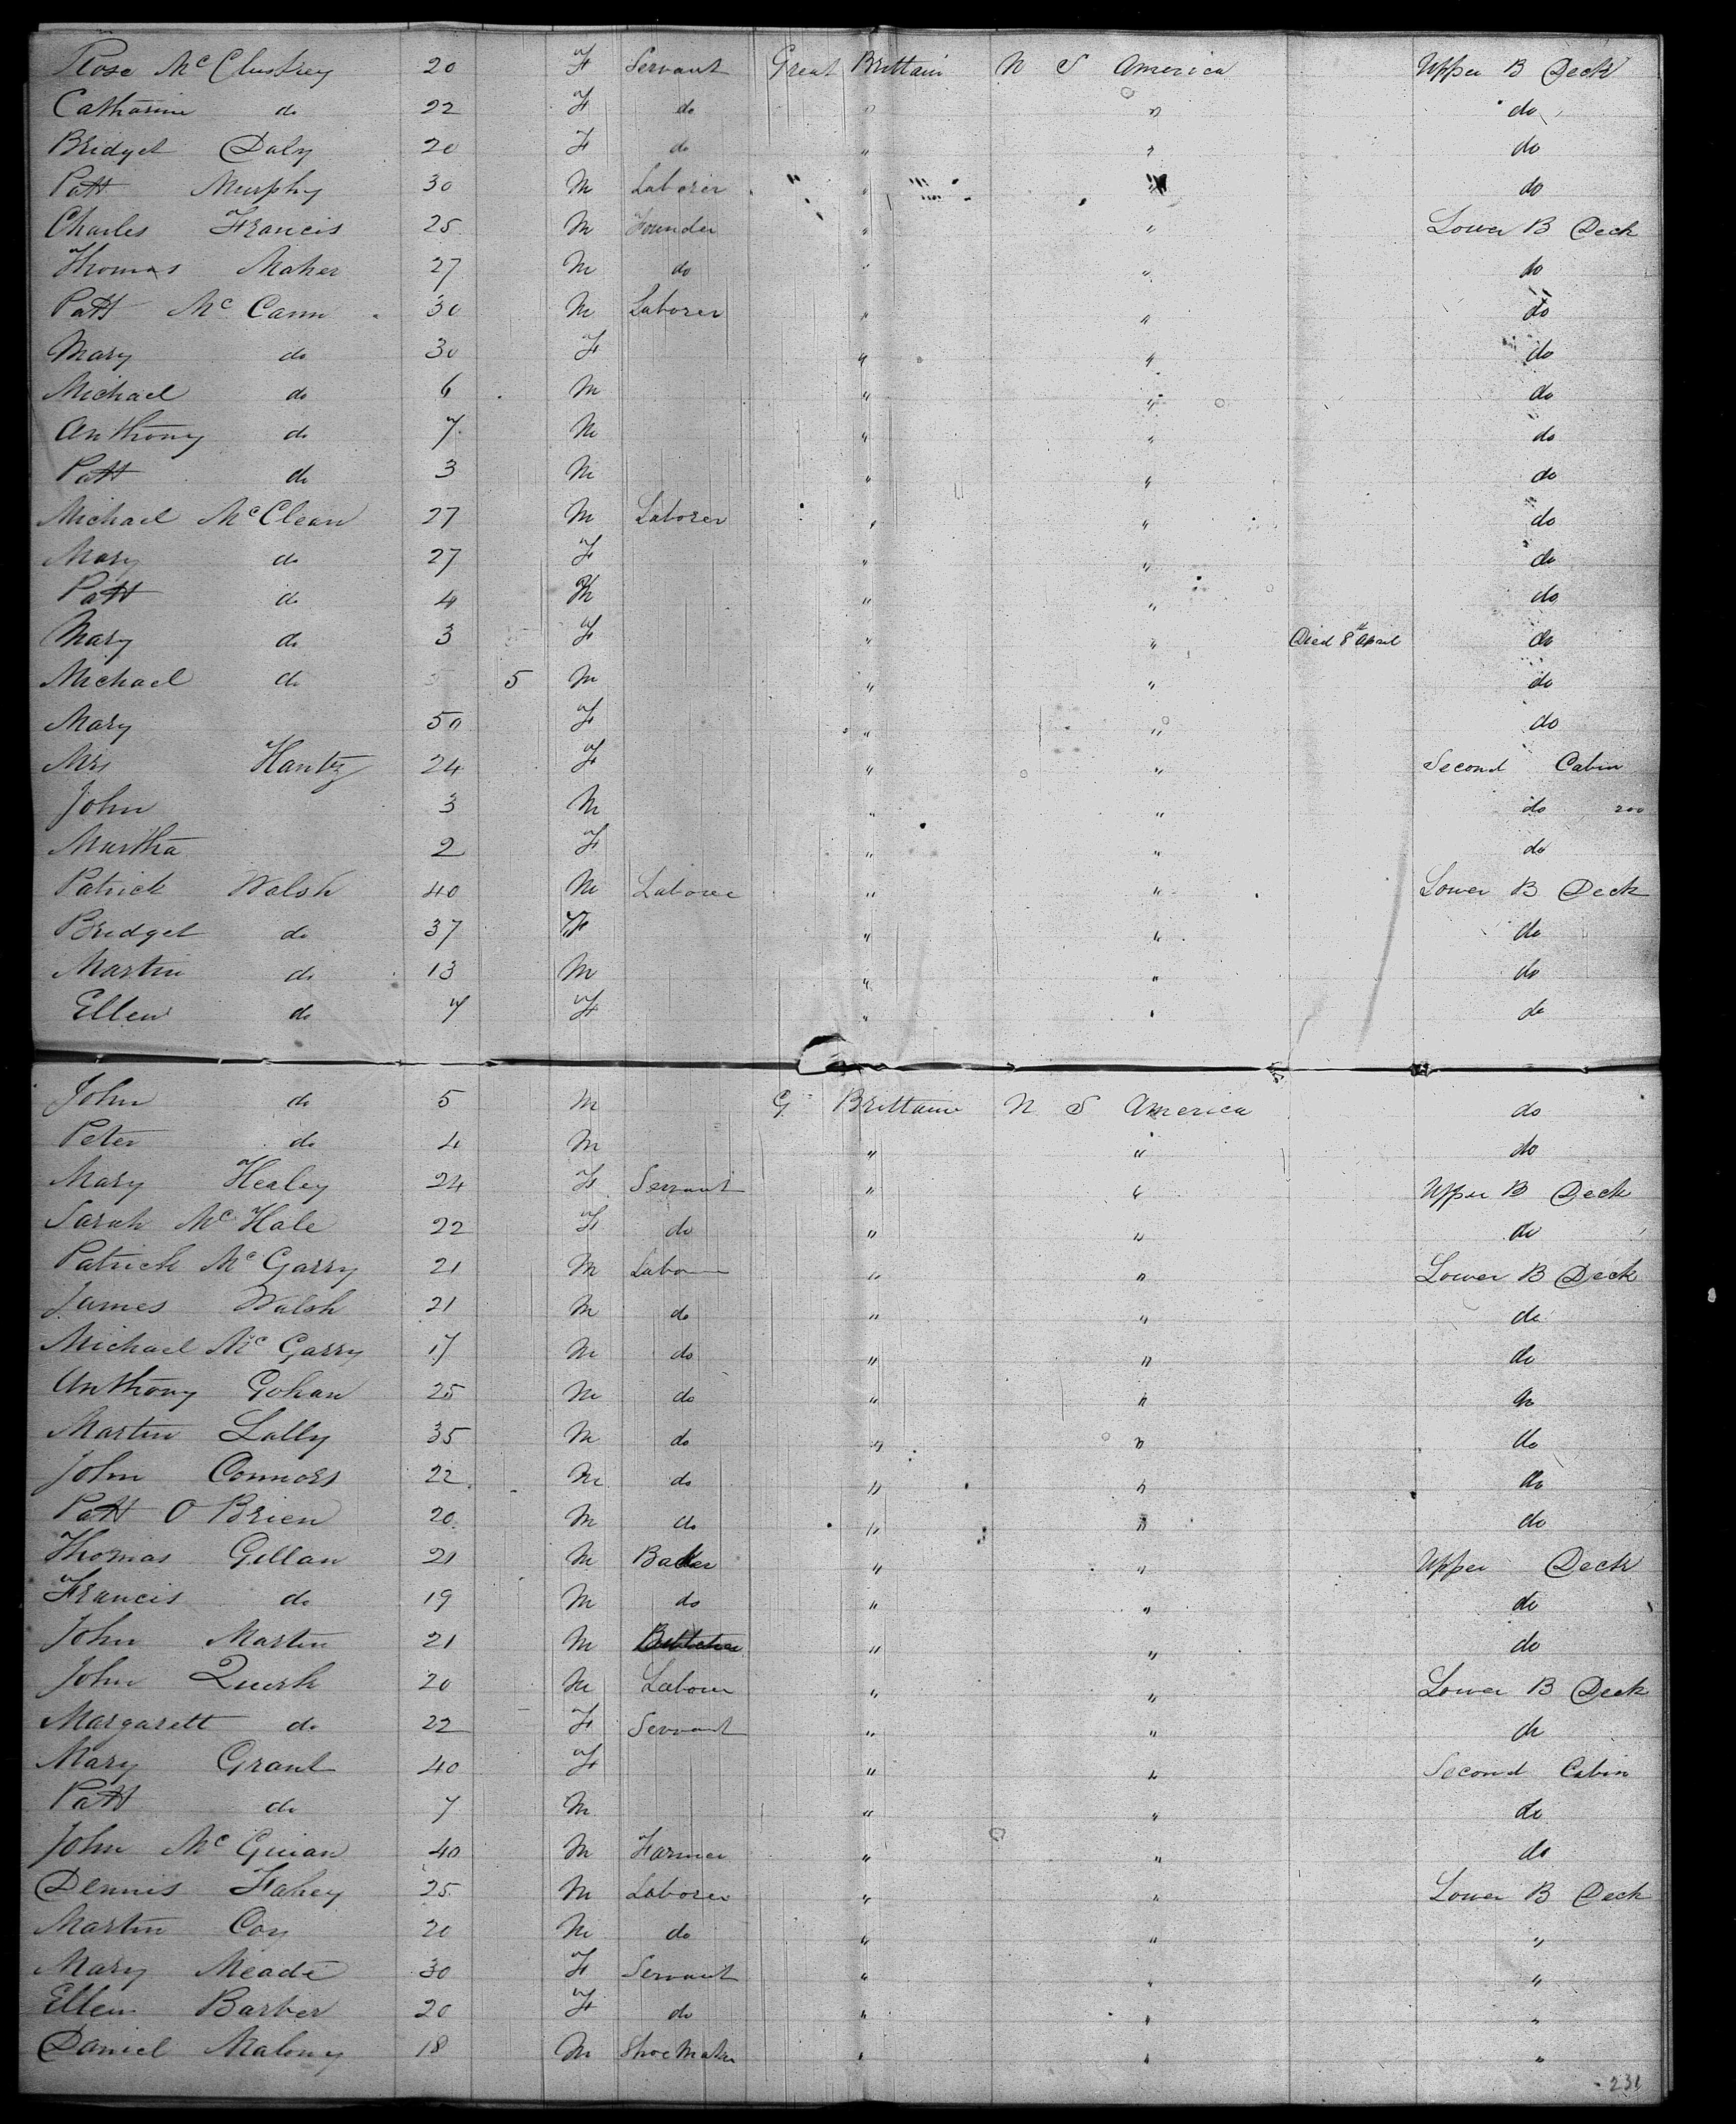 Rose McCluskey 20 F Servant Great Brittain N S America Upper B Deck
Catharine do 22 F do " " do
Bridget Daly 20 F do " " do
Patt Murphy 30 M Laborer " " " do
Charles Francis 25 M Founder " " Lower B Deck
Thomas Maher 27 M do " " do
Patt McCann 30 M Laborer " " do
Mary do 30 F " " do
Michael do 6 M " " do
Anthony do 7 M " " do
Patt do 3 M " " do
Michael McClean 27 M Laborer " " do
Mary do 27 F " " do
Patt do 4 M " " do
Mary do 3 F " " Died 8th April do
Michael do 5 M " " do
Mary 50 F " " do
Mrs Hantz 24 F " " Second Cabin
John 3 M " " do 200
Martha 2 F " " do
Patrick Walsh 40 M Laborer " " Lower B Deck
Bridget do 37 F " " do
Martin do 13 M " " do
Ellen do 7 F " " do
John do 5 M G Brittain N S America do
Peter do 4 M " " do
Mary Healey 24 F Servant " " Upper B Deck
Sarah McHale 22 F do " " do
Patrick McGarry 21 M Labour " " Lower B Deck
James Walsh 21 M do " " do
Michael McGarry 17 M do " " do
Anthony Gohan 25 M do " " do
Martin Lally 35 M do " " do
John Connors 22 M do " " do
Patt O Brien 20 M do " " do
Thomas Gillan 21 M Baker " " Upper Deck
Francis do 19 M do " " do
John Martin 21 M Butcher " " do
John Quirk 20 M Labour " " Lower B Deck
Margarett do 22 F Servant " " do
Mary Grant 40 F " " Second Cabin
Patt do 7 M " " do
John McGuian 40 M Farmer " " do
Dennis Fahey 25 M Laborer " " Lower B Deck
Martin Coy 20 M do " " "
Mary Meade 30 F Servant " " "
Ellen Barber 20 F do " " "
Daniel Malony 18 M Shoe Maker " " "
231